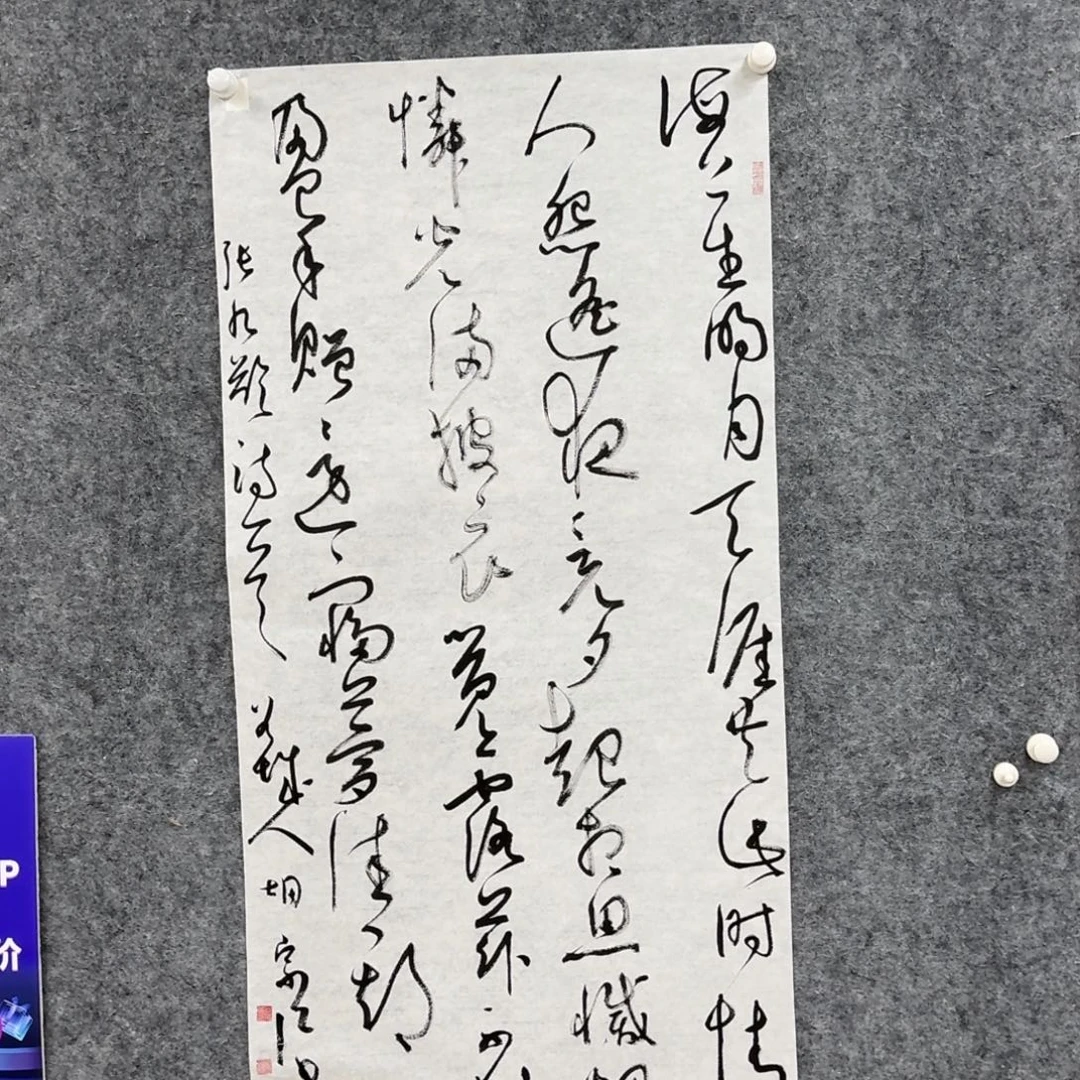 海上生明月天涯共此时情
人怨遥夜竟夕起相思滅烛
憐光满披衣觉露滋不堪
盈手赠还寝梦佳期
张九龄诗
人
P
价